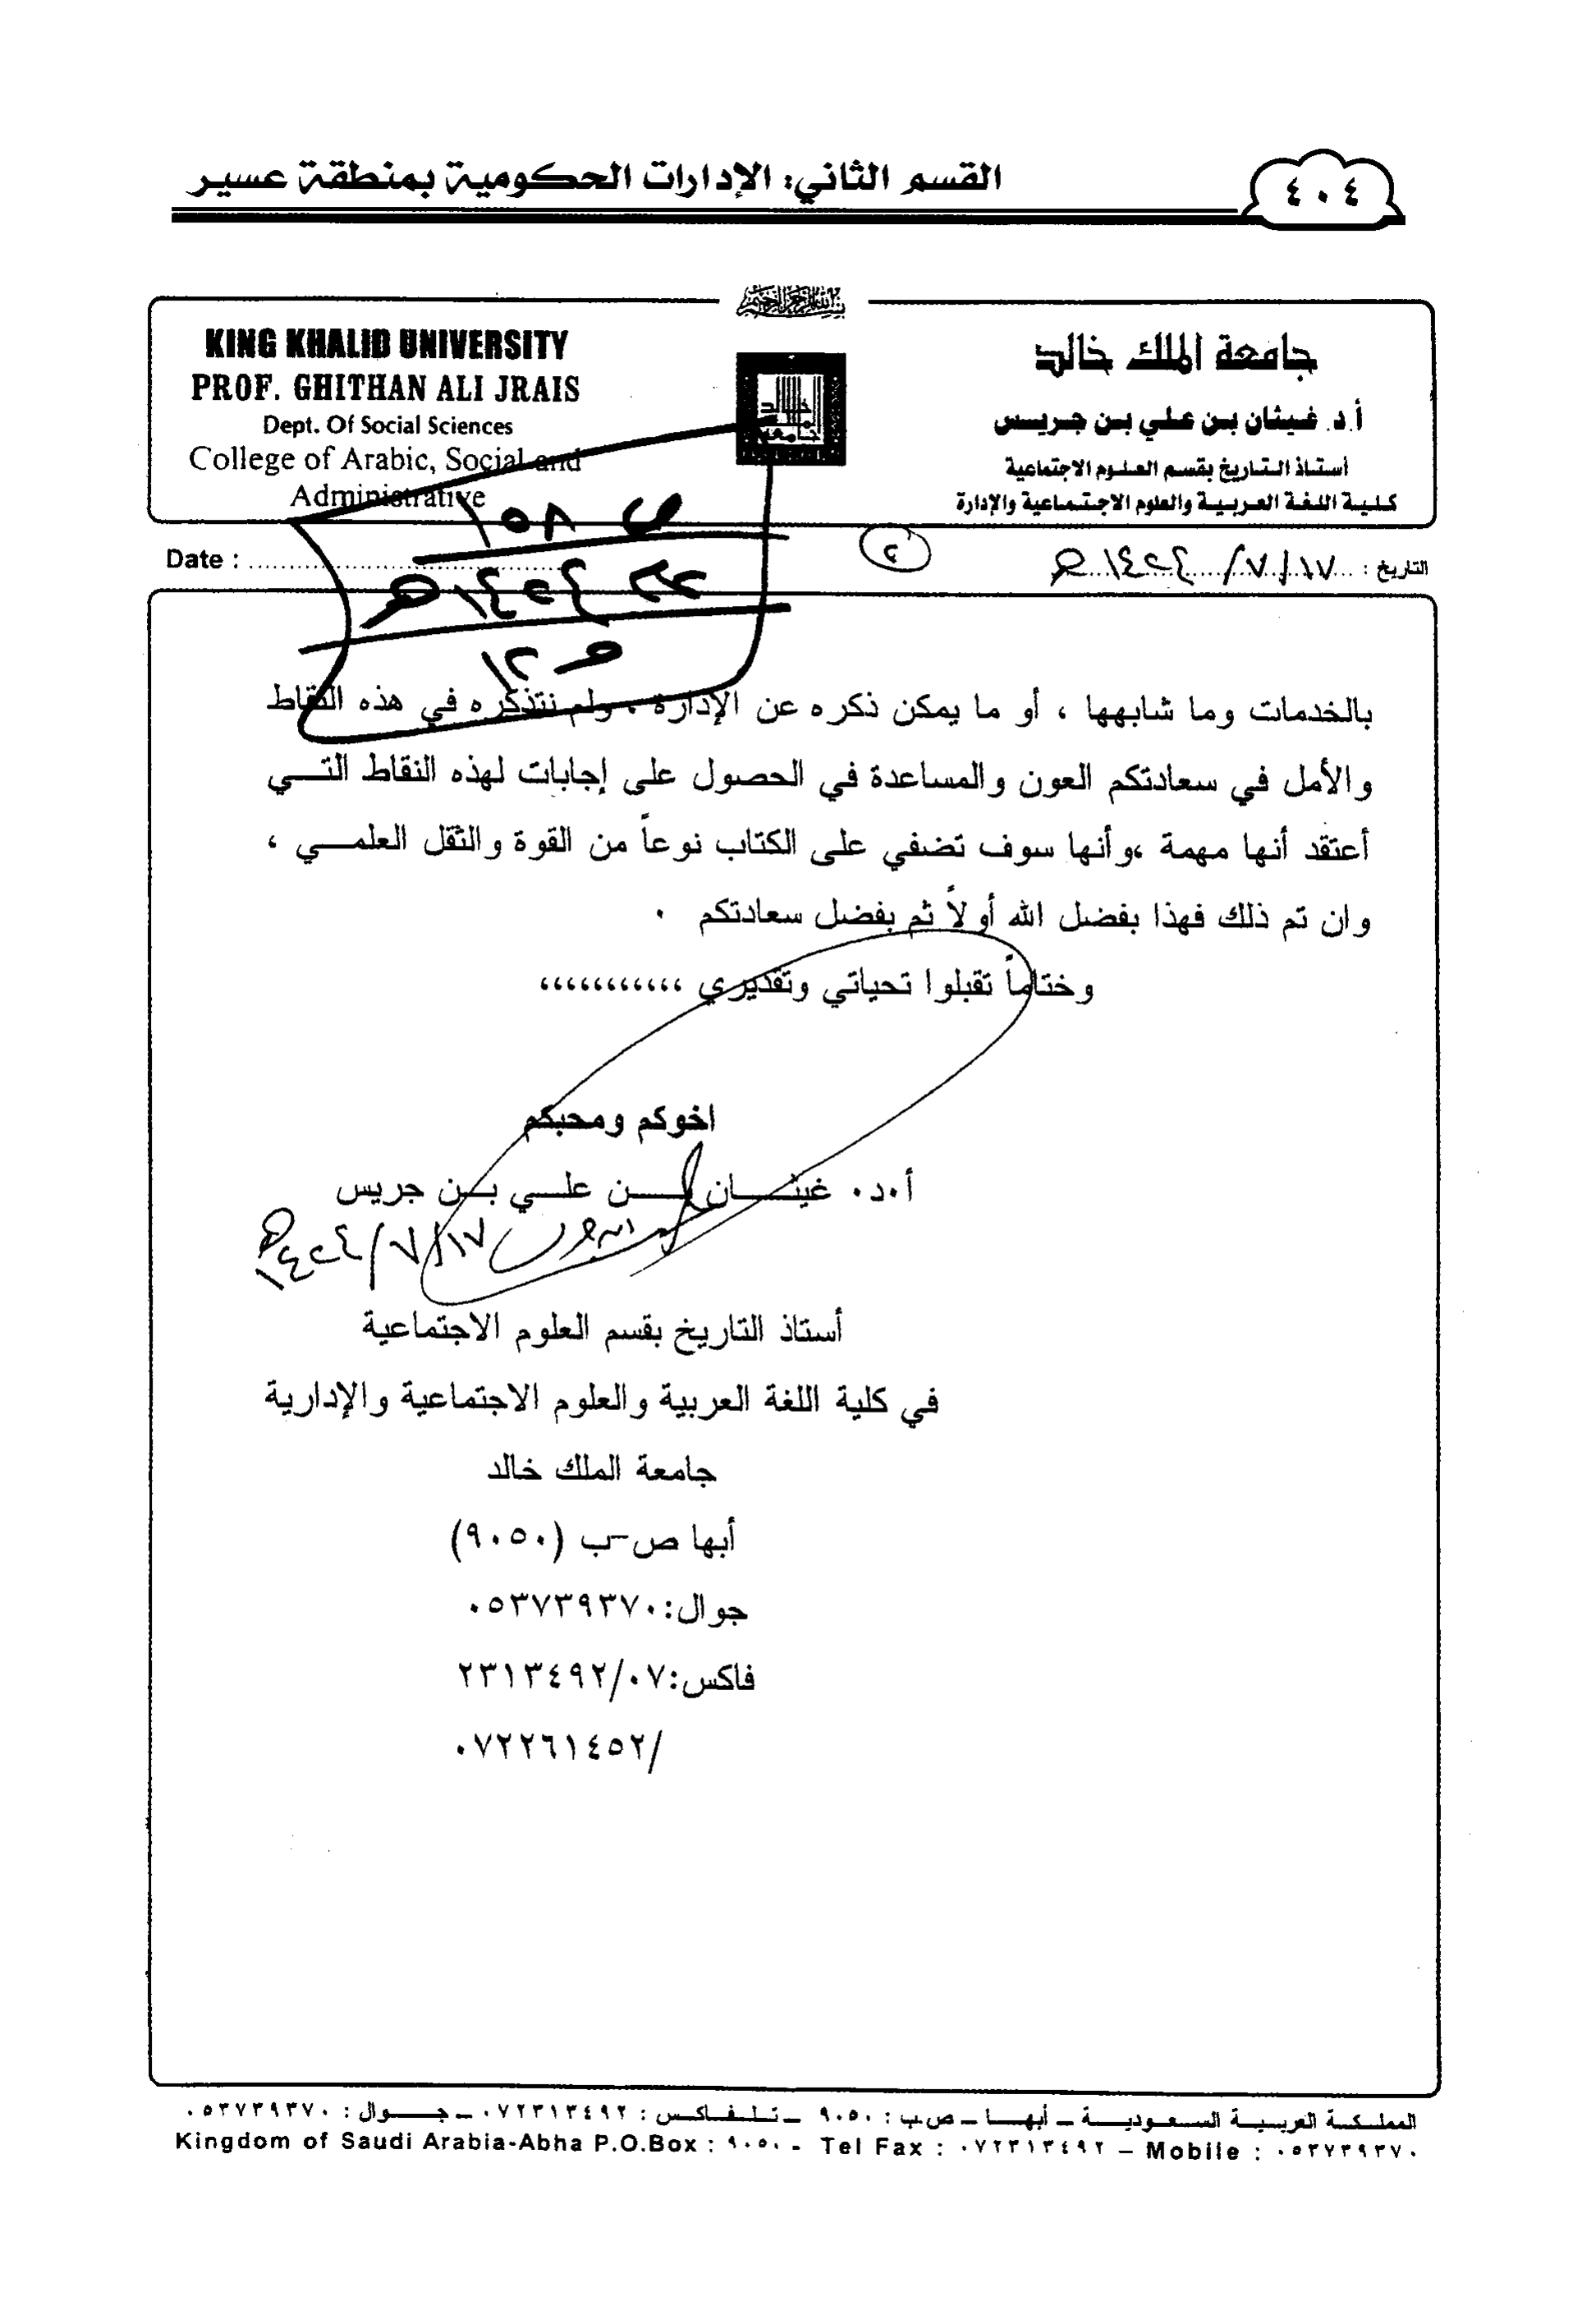 القسم الثاني: الإدارات الحكومية بمنطقة عسير
٤٠٤
بسم الله الرحمن الرحيم
جامعة الملك خالد
أ.د. غيثان بن علي بن جريس
أستاذ التاريخ بقسم العلوم الاجتماعية
كلية اللغة العربية والعلوم الاجتماعية والإدارة
KING KHALID UNIVERSITY
PROF. GHITHAN ALI JRAIS
Dept. Of Social Sciences
College of Arabic, Social and
Administrative
ص ١٥٨
١٤٢٤هـ
١٢
التاريخ : ١٧/٧/١٤٢٤هـ
٢
Date :
بالخدمات وما شابهها ، أو ما يمكن ذكره عن الإدارة ، ولم نتذكره في هذه النقاط
والأمل في سعادتكم العون والمساعدة في الحصول على إجابات لهذه النقاط التـــي
أعتقد أنها مهمة ،وأنها سوف تضفي على الكتاب نوعاً من القوة والثقل العلمـــي ،
وان تم ذلك فهذا بفضل الله أولاً ثم بفضل سعادتكم .
وختاماً تقبلوا تحياتي وتقديري ،،،،،،،،،،،
اخوكم ومحبكم
أ.د. غيثـــان بـــن علـــي بـــن جريس
١٧/٧/١٤٢٤هـ
أستاذ التاريخ بقسم العلوم الاجتماعية
في كلية اللغة العربية والعلوم الاجتماعية والإدارية
جامعة الملك خالد
أبها ص–ب (٩٠٥٠)
جوال:٠٥٣٧٣٩٣٧٠
فاكس:٢٣١٣٤٩٢/٠٧
٠٧٢٢٦١٤٥٢/
المملكة العربية السعودية – أبها – ص.ب : ٩٠٥٠ – تلفاكس : ٠٧٢٣١٣٤٩٢ – جوال : ٠٥٣٧٣٩٣٧٠
Kingdom of Saudi Arabia-Abha P.O.Box : ٩٠٥٠ - Tel Fax : ٠٧٢٣١٣٤٩٢ – Mobile : ٠٥٣٧٣٩٣٧٠